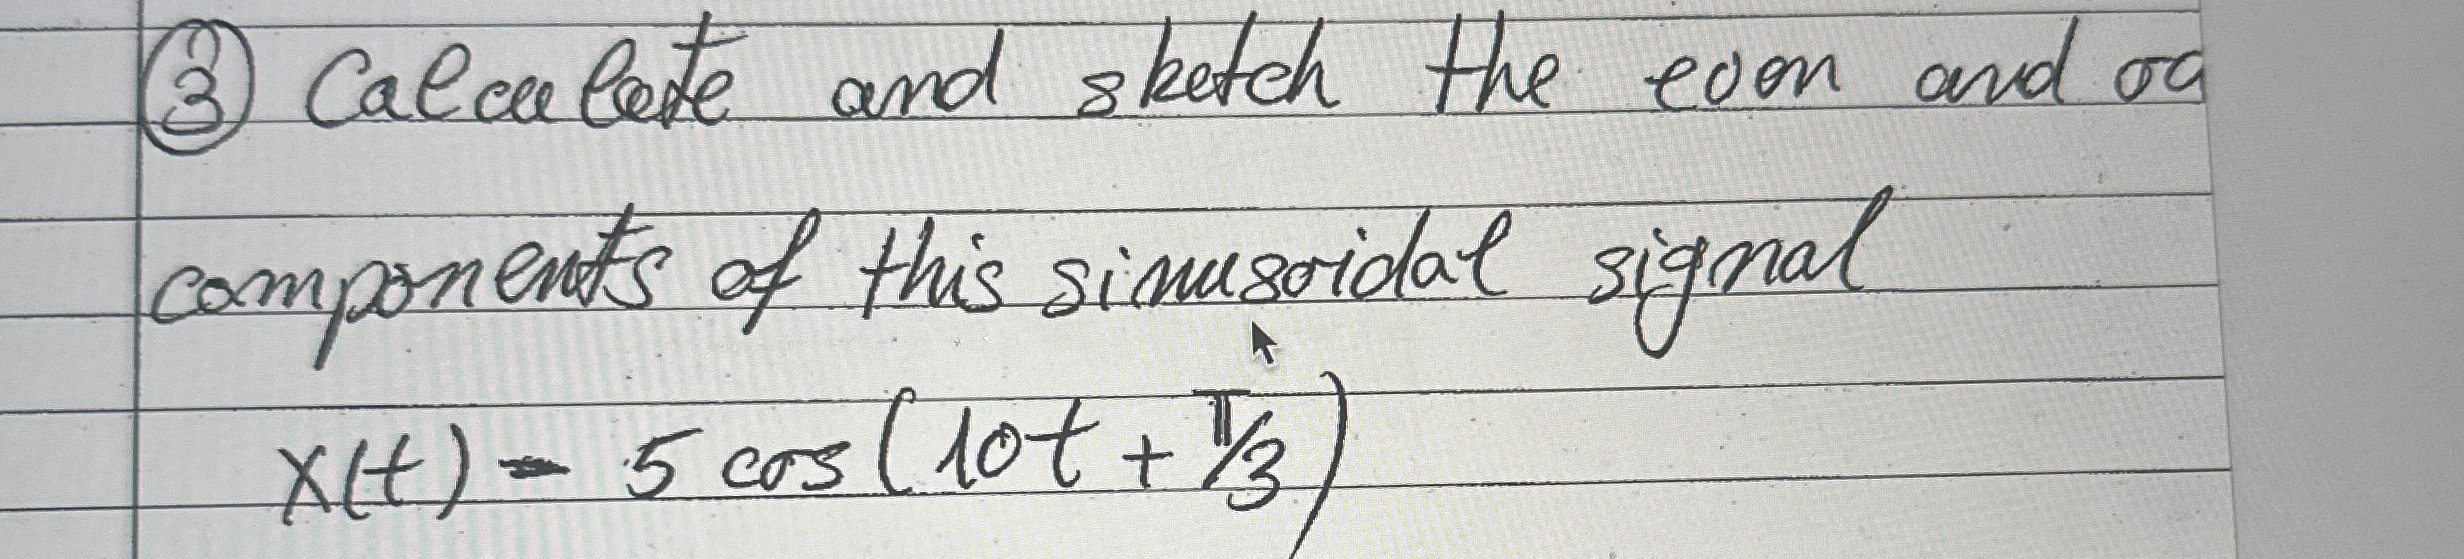 ③ Calculate and sketch the even and od
components of this sinusoidal signal
x(t) = 5 cos(10t + π/3)